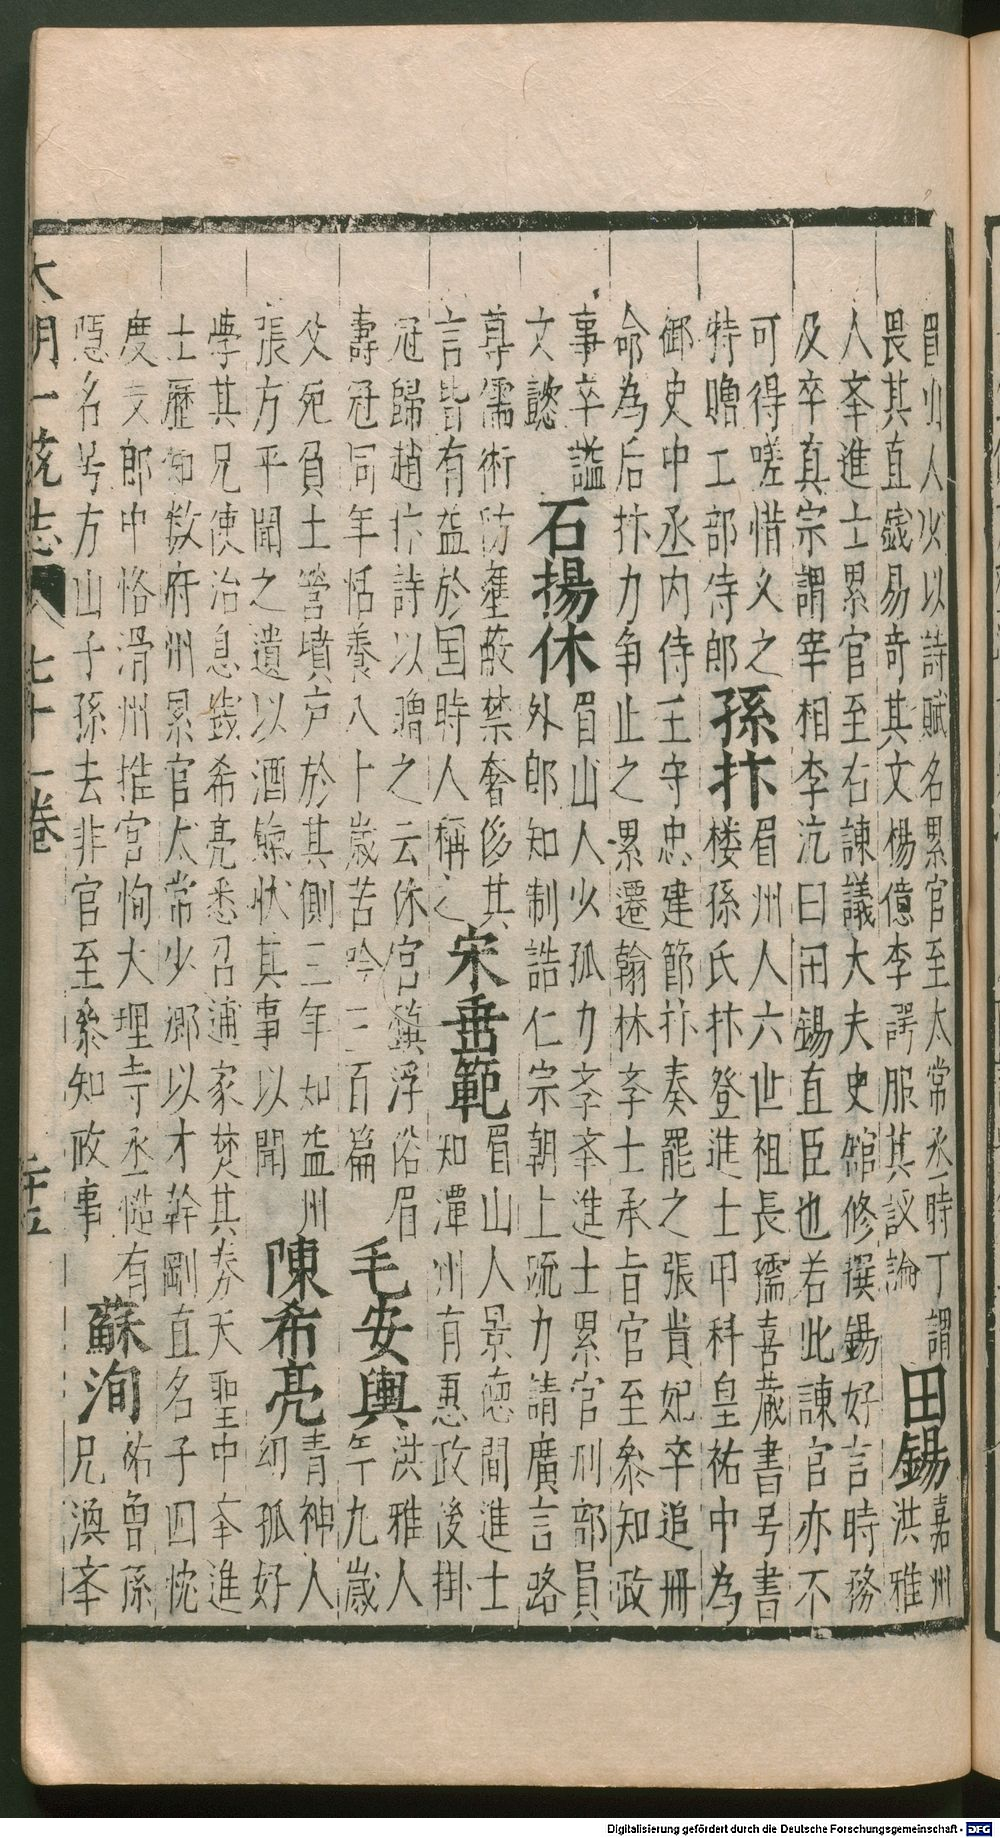 眉山人少以詩賦名累官至太常丞時丁謂
畏其直錢易奇其文楊億李諤服其議論
田錫
嘉州
洪雅
人举進士累官至右諫議大夫史舘修撰錫好言時務
及卒真宗謂宰相李沆曰田錫直臣也若此諫官亦不
可得嗟惜久之
特贈工部侍郎
孫抃
眉州人六世祖長孺喜蔵書号書
楼孫氏抃登進士甲科皇祐中為
御史中丞内侍王守忠建節抃奏罷之張貴妃卒追冊
命為后抃力争止之累遷翰林孝士承旨官至叅知政
事卒謚
文懿
石揚休
眉山人少孤力孝举進士累官刑部員
外郎知制誥仁宗朝上疏力請廣言路
尊儒術防壅蔽禁奢侈其
言皆有益於国時人稱之
宋垂範
眉山人景德間進士
知潭州有惠政後掛
冠歸趙抃詩以贈之云休官鎮浮俗眉
壽冠同年恬養八十歲苦吟三百篇
毛安輿
洪雅人
年九歲
父死負土營墳户於其側三年知益州
張方平聞之遺以酒餼状其事以聞
陳希亮
青神人
幼孤好
學其兄使治息錢希亮悉召逋家焚其券天聖中举進
士歷知数府州累官太常少卿以才幹剛直名子四忱
度支郎中恪滑州推官恂大理寺丞慥有
隠名号方山子孫去非官至叅知政事
蘇洵
祐魯孫
兄渙举
大明一统志 七十一卷 二十五
Digitalisierung gefördert durch die Deutsche Forschungsgemeinschaft - DFG